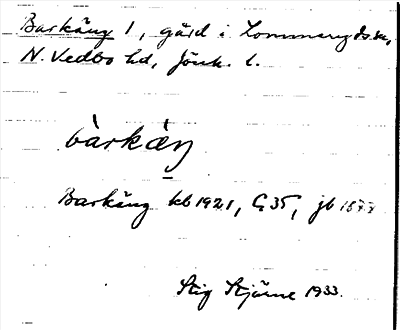 Barkäng 1, gård i Lommaryds sn,
N. Vedbo hd, Jönk. l.
bàrkæ̀ŋ
Barkäng kb 1921, G35, jb
Stig Stjärne 1933.